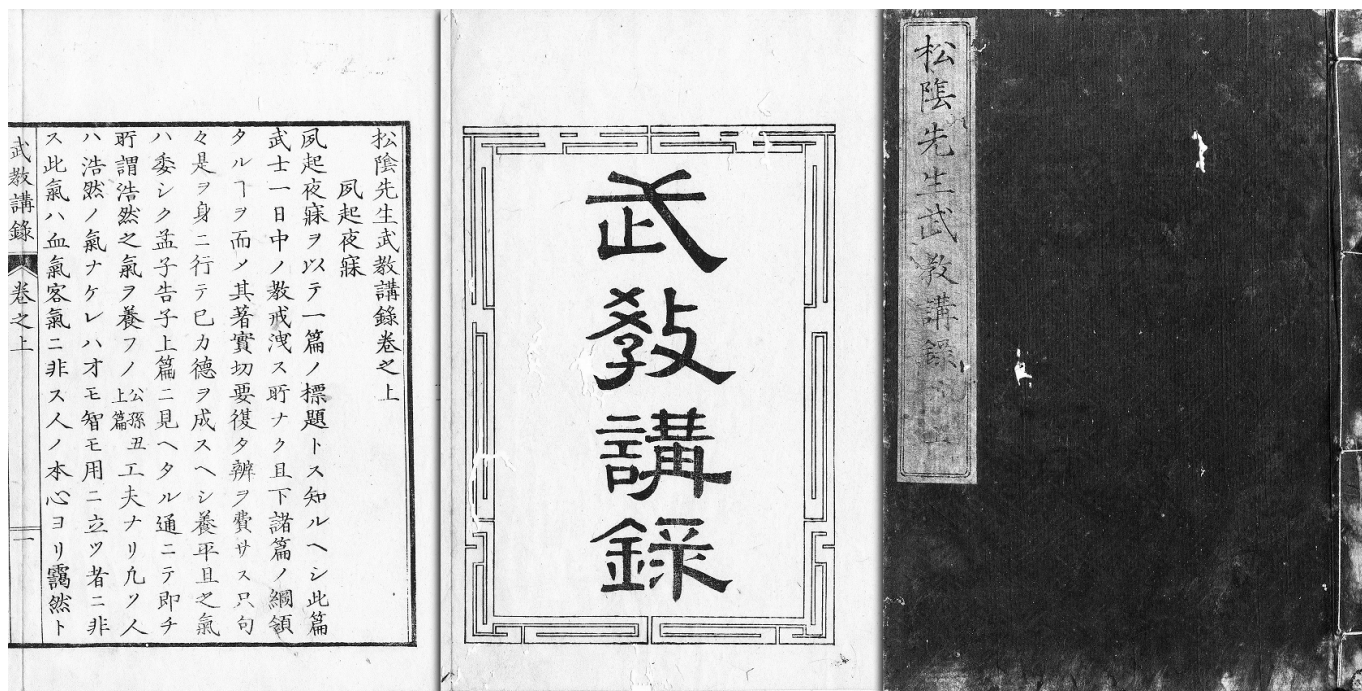 松隂先生武教講錄
武教講錄
松陰先生武教講錄卷之上
夙起夜寐
夙起夜寐ヲ以テ一篇ノ標題トス知ルヘシ此篇
武士一日中ノ教戒洩ス所ナク且下諸篇ノ綱領
タルヿヲ而メ其著實切要復タ辨ヲ費サス只句
々是ヲ身ニ行テ已カ德ヲ成スヘシ養平旦之氣
ハ委シク孟子告子上篇ニ見ヘタル通ニテ即チ
所謂浩然之氣ヲ養フノ公孫丑上篇工夫ナリ凡ソ人
ハ浩然ノ氣ナケレハ才モ智モ用ニ立ツ者ニ非
ス此氣ハ血氣客氣ニ非ス人ノ本心ヨリ靄然ト
武教講錄 卷之上 一